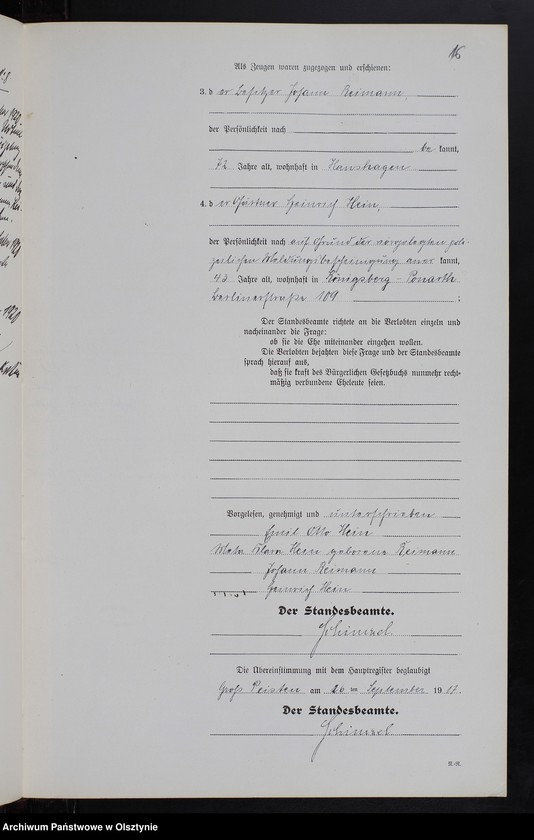 16
Als Zeugen waren zugezogen und erschienen:
3. der Besitzer Johann Reimann
der Persönlichkeit nach
bekannt,
72 Jahre alt, wohnhaft in Hanshagen
4. der Gärtner Heinrich Hein,
der Persönlichkeit nach auf Grund der vorgelegten poli-
zeilichen Meldungsbescheinigung anerkannt,
43 Jahre alt, wohnhaft in Königsberg - Ponarth
Berlinerstraße 109 ;
Der Standesbeamte richtete an die Verlobten einzeln und
nacheinander die Frage:
ob sie die Ehe miteinander eingehen wollen.
Die Verlobten bejahten diese Frage und der Standesbeamte
sprach hierauf aus,
daß sie kraft des Bürgerlichen Gesetzbuchs nunmehr recht-
mäßig verbundene Eheleute seien.
Vorgelesen, genehmigt und unterschrieben
Emil Otto Hein
Meta Klara Hein geborene Reimann
Johann Reimann
Heinrich Hein
Der Standesbeamte.
Schimzel
Die Übereinstimmung mit dem Hauptregister beglaubigt
Groß Peisten am 26 ten September 1917.
Der Standesbeamte.
Schimzel
R.-R.
Archiwum Państwowe w Olsztynie